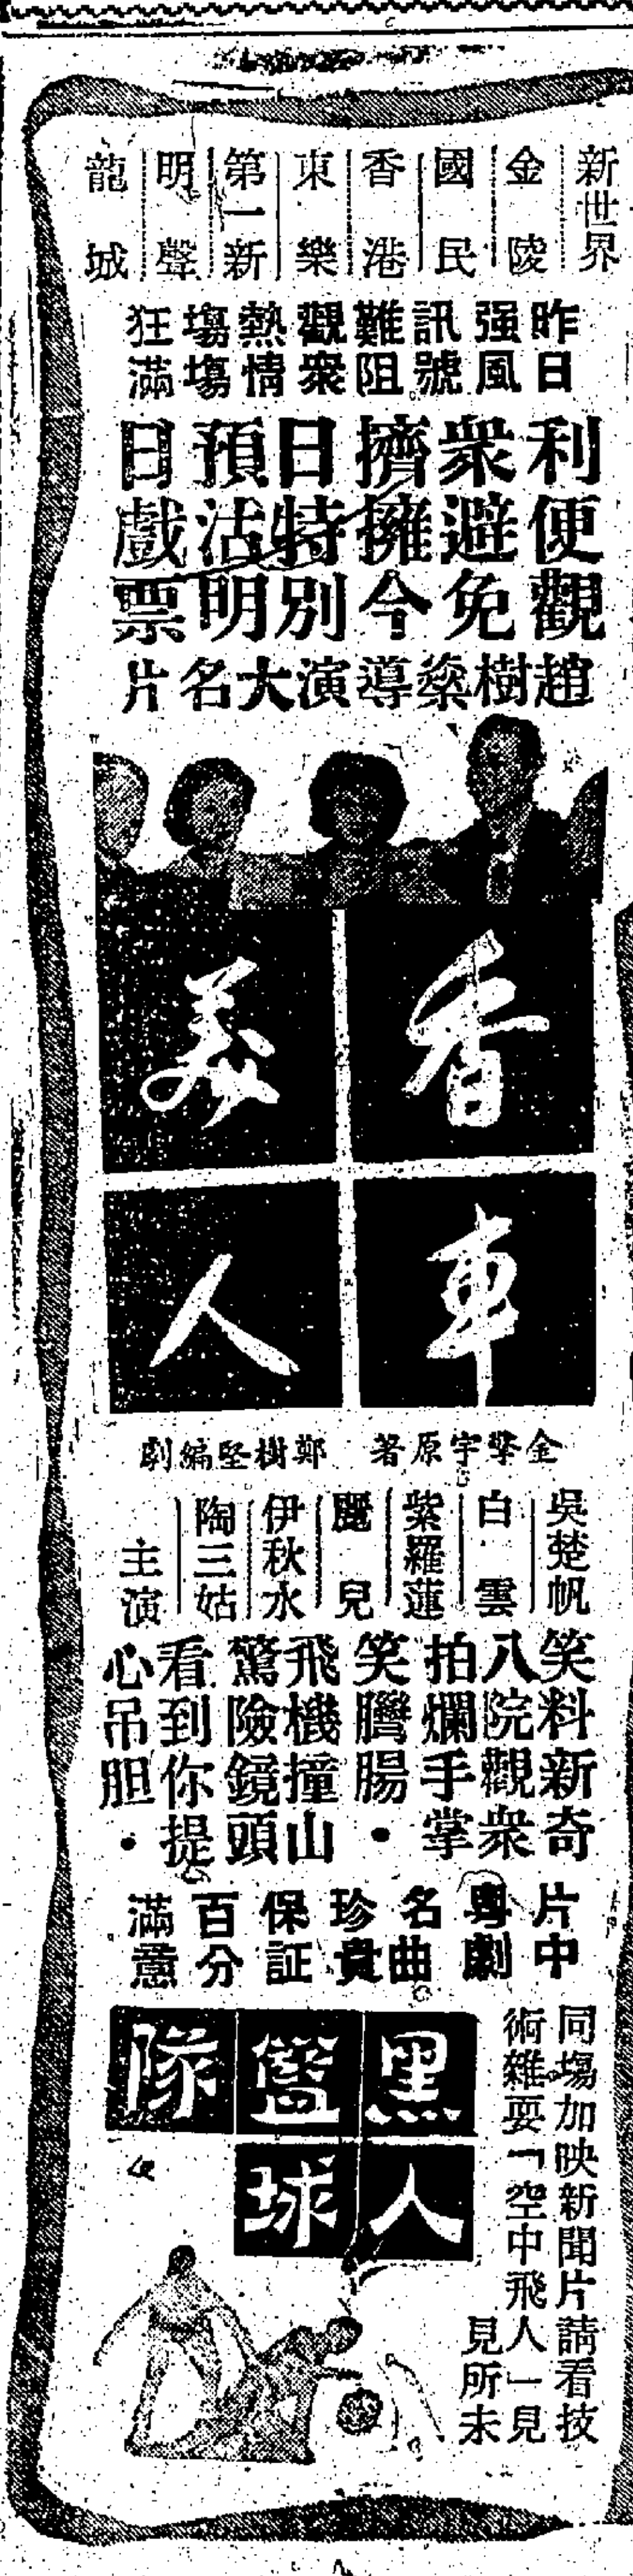 新世界
金陵
國民
香港
東樂
第一新
明聲
龍城
昨日
强風
訊號
難阻
觀衆
熱情
塲塲
狂滿
利便觀
衆避免
擠擁今
日特別
預沽明
日戲票
趙樹燊導演大名片
香車
美人
金擎宇原著 鄭樹堅編劇
吳楚帆
白雲
紫羅蓮
麗兒
伊秋水
陶三姑
主演
笑料新奇
八院觀衆
拍爛手掌
笑腸・
飛機撞山
驚險鏡頭
看到你提
心吊胆・
片中
粵劇
名曲
珍貴
保証
百分
滿意
同塲加映新聞片請看技
術雜耍「空中飛人」見
見所未
黑人
籃球
隊